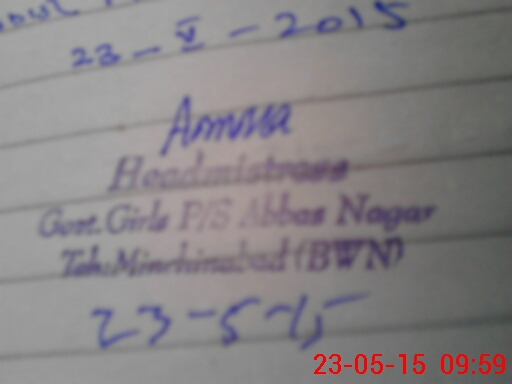 23-V-2015
Amna
Headmistress
Govt. Girls P/S Abbas Nagar
Teh: Minchinabad (BWN)
23-5-15
23-05-15 09:59